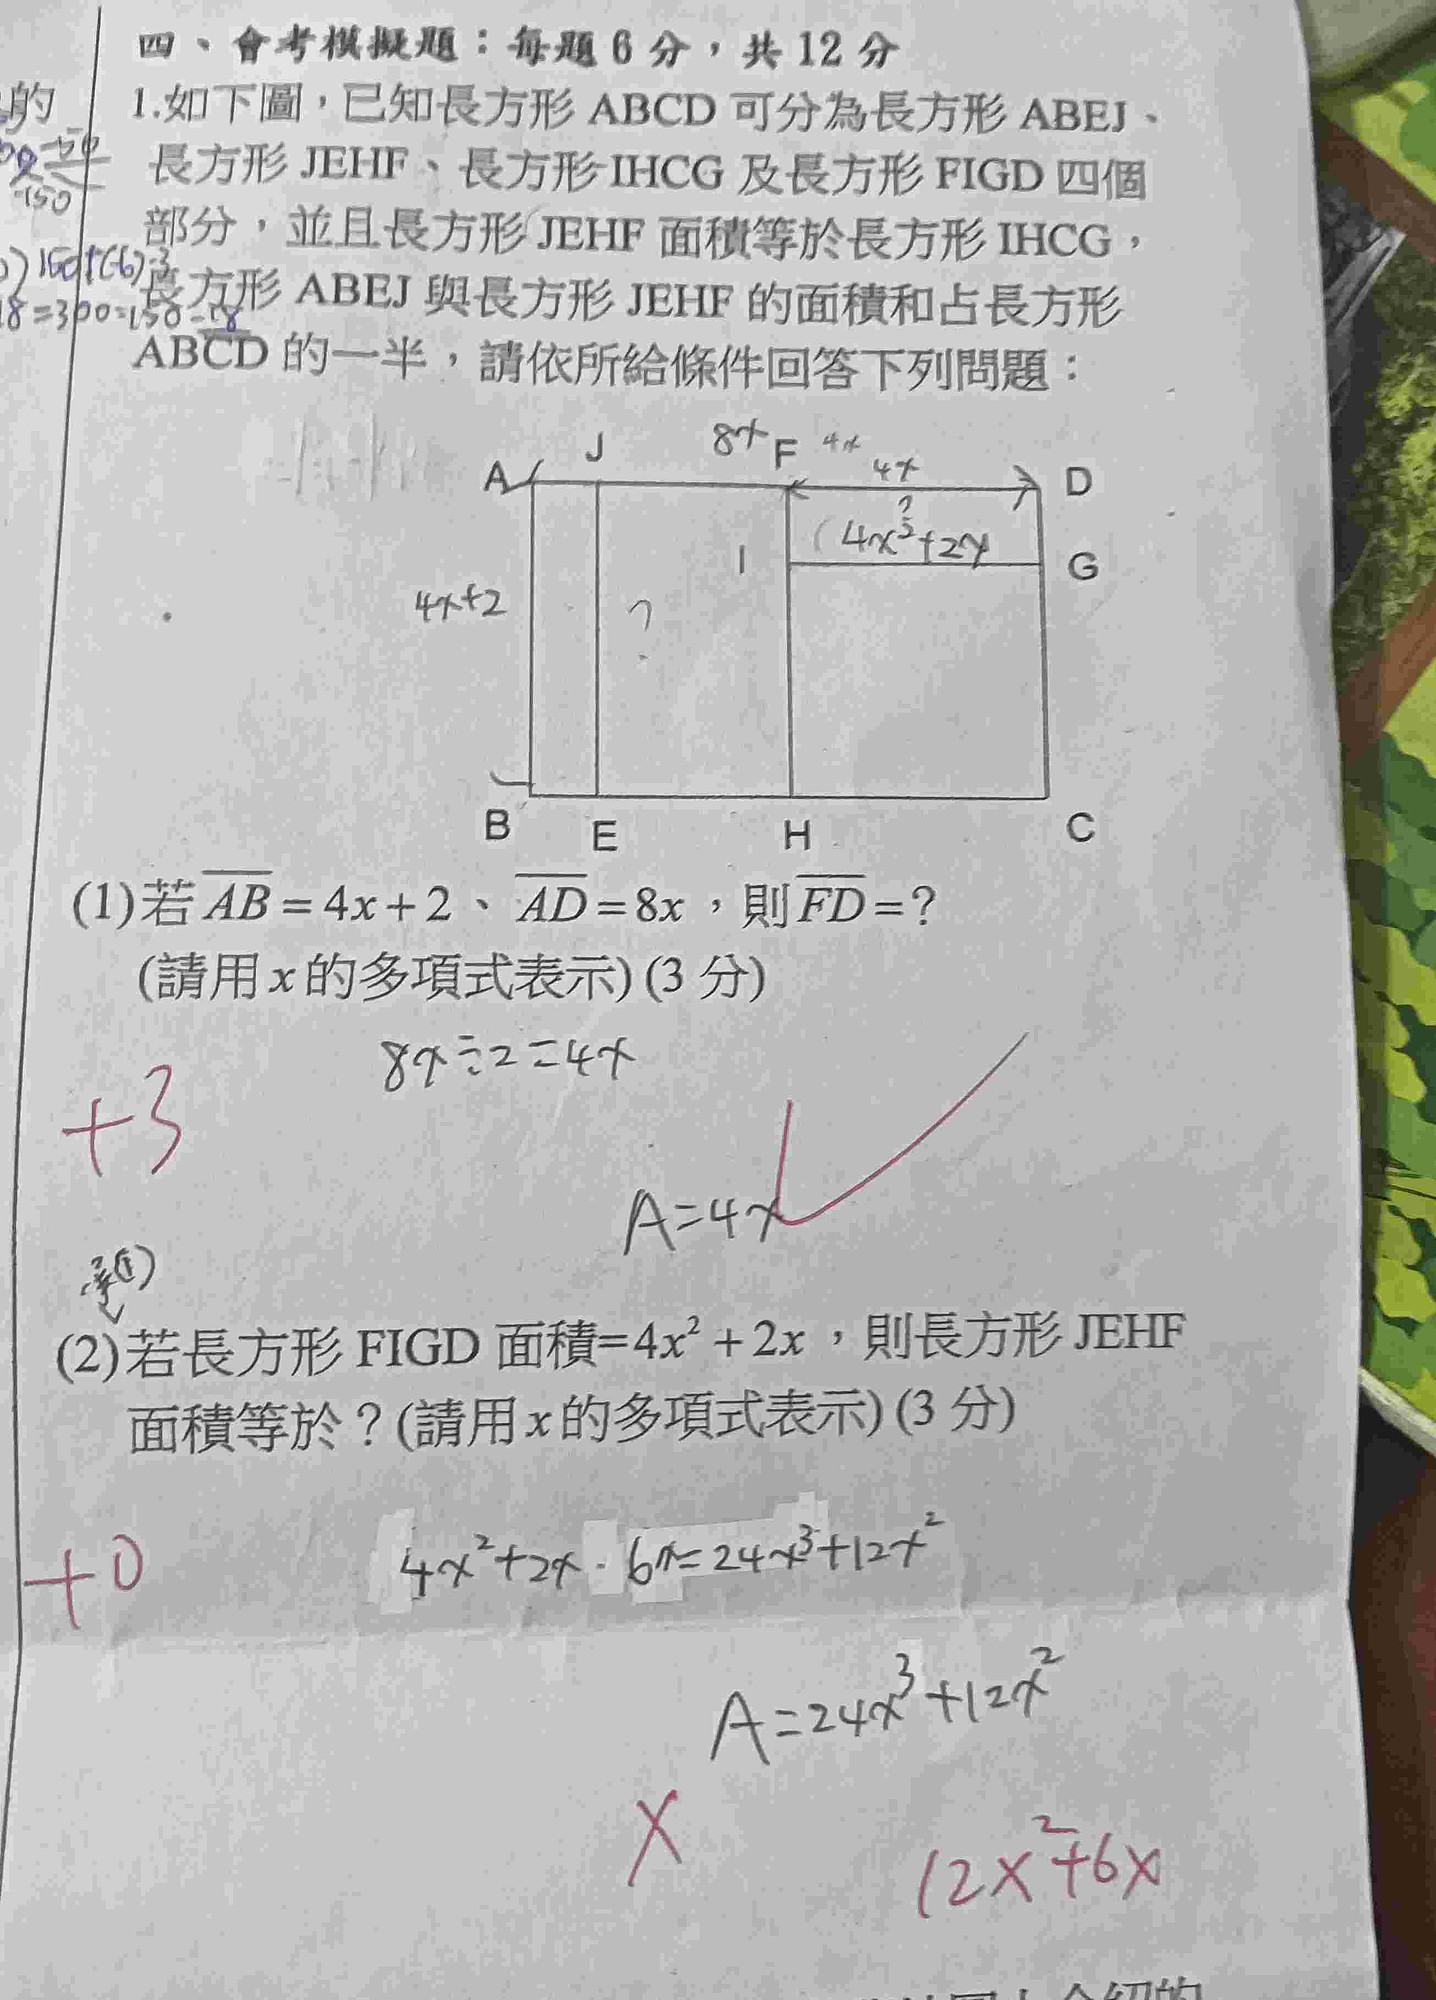 四、會考模擬題：每題 6 分，共 12 分
的
1.如下圖，已知長方形 ABCD 可分為長方形 ABEJ、
長方形 JEHF、長方形 IHCG 及長方形 FIGD 四個
-150
部分，並且長方形 JEHF 面積等於長方形 IHCG，
長方形 ABEJ 與長方形 JEHF 的面積和占長方形
ABCD 的一半，請依所給條件回答下列問題：
J 8x F 4x
A 4x D
?
I (4x²+2x G
4x+2 ?
B E H C
(1)若 AB = 4x + 2、AD = 8x，則 FD = ?
(請用 x 的多項式表示) (3 分)
8x÷2=4x
+3
A=4x
承(1)
(2)若長方形 FIGD 面積=4x² + 2x，則長方形 JEHF
面積等於？(請用 x 的多項式表示) (3 分)
4x²+2x · 6x=24x³+12x²
+0
A=24x³+12x²
X
12x²+6x